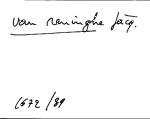 van reninghe Jacq.
1572/89